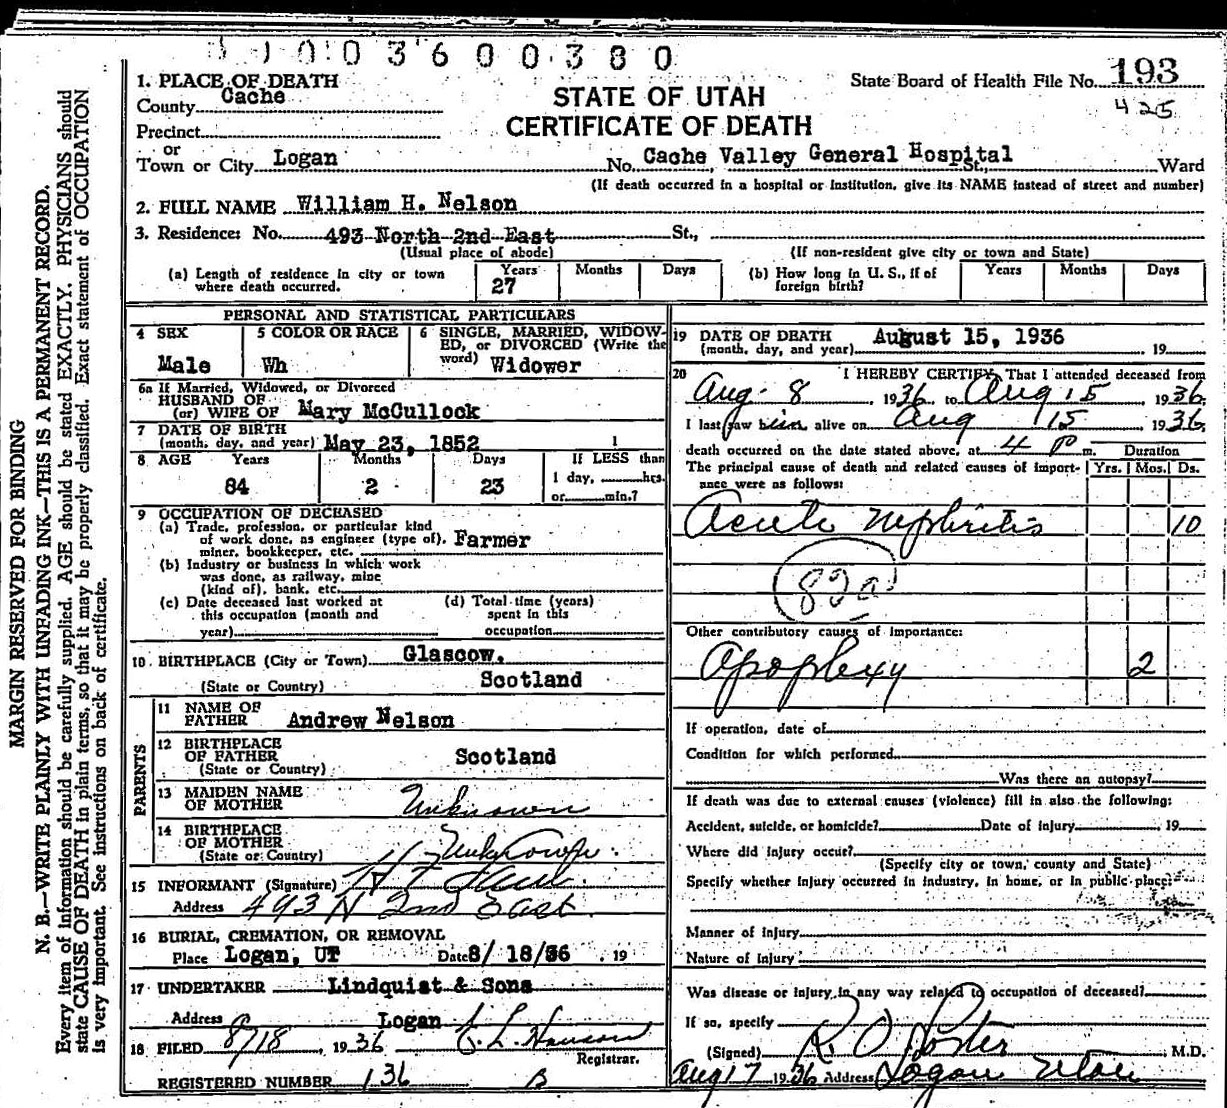 3 6 0 0 3 8 0
1. PLACE OF DEATH
County Cache
State Board of Health File No. 193
425
STATE OF UTAH
CERTIFICATE OF DEATH
Precinct
or
Town or City Logan No. Cache Valley General Hospital St., Ward
(If death occurred in a hospital or institution, give its NAME instead of street and number)
2. FULL NAME William H. Nelson
3. Residence: No. 493 North 2nd East St.,
(Usual place of abode) (If non-resident give city or town and State)
(a) Length of residence in city or town where death occurred. Years 27 Months Days
(b) How long in U. S., if of foreign birth? Years Months Days
PERSONAL AND STATISTICAL PARTICULARS
4 SEX Male
5 COLOR OR RACE Wh
6 SINGLE, MARRIED, WIDOW-
ED, or DIVORCED (Write the
word) Widower
6a If Married, Widowed, or Divorced
HUSBAND OF
(or) WIFE OF Mary McCullock
7 DATE OF BIRTH
(month, day, and year) May 23, 1852 1
8 AGE Years Months Days If LESS than
84 2 23 1 day, hrs.
or min.?
9 OCCUPATION OF DECEASED
(a) Trade, profession, or particular kind
of work done, as engineer (type of), Farmer
miner, bookkeeper, etc.
(b) Industry or business in which work
was done, as railway, mine
(kind of), bank, etc.
(c) Date deceased last worked at
this occupation (month and
year)
(d) Total time (years)
spent in this
occupation
10 BIRTHPLACE (City or Town) Glascow,
(State or Country) Scotland
PARENTS
11 NAME OF
FATHER Andrew Nelson
12 BIRTHPLACE
OF FATHER Scotland
(State or Country)
13 MAIDEN NAME
OF MOTHER Unknown
14 BIRTHPLACE
OF MOTHER
(State or Country)
15 INFORMANT (Signature)
Address 493 N 2nd East
16 BURIAL, CREMATION, OR REMOVAL
Place Logan, UT Date 8/ 18/36 , 19
17 UNDERTAKER Lindquist & Sons
Address Logan
18 FILED 8/18, 1936
Registrar.
REGISTERED NUMBER 136 B
19 DATE OF DEATH August 15, 1936
(month, day, and year) , 19
20 I HEREBY CERTIFY, That I attended deceased from
Aug - 8, 1936, to Aug 15 1936,
I last saw him alive on Aug 15 1936,
death occurred on the date stated above, at 4 P m. Duration
The principal cause of death and related causes of import-
ance were as follows: Yrs. Mos. Ds.
Acute Nephritis 10
82a
Other contributory causes of importance:
Apoplexy 2
If operation, date of
Condition for which performed
Was there an autopsy?
If death was due to external causes (violence) fill in also the following:
Accident, suicide, or homicide? Date of injury , 19
Where did injury occur?
(Specify city or town, county and State)
Specify whether injury occurred in industry, in home, or in public place:
Manner of injury
Nature of injury
Was disease or injury in any way related to occupation of deceased?
If so, specify
(Signed) R. O. Porter, M.D.
Aug 17 1936 Address Logan Utah
MARGIN RESERVED FOR BINDING
N. B.—WRITE PLAINLY WITH UNFADING INK—THIS IS A PERMANENT RECORD.
Every item of information should be carefully supplied. AGE should be stated EXACTLY. PHYSICIANS should
state CAUSE OF DEATH in plain terms, so that it may be properly classified. Exact statement of OCCUPATION
is very important. See instructions on back of certificate.